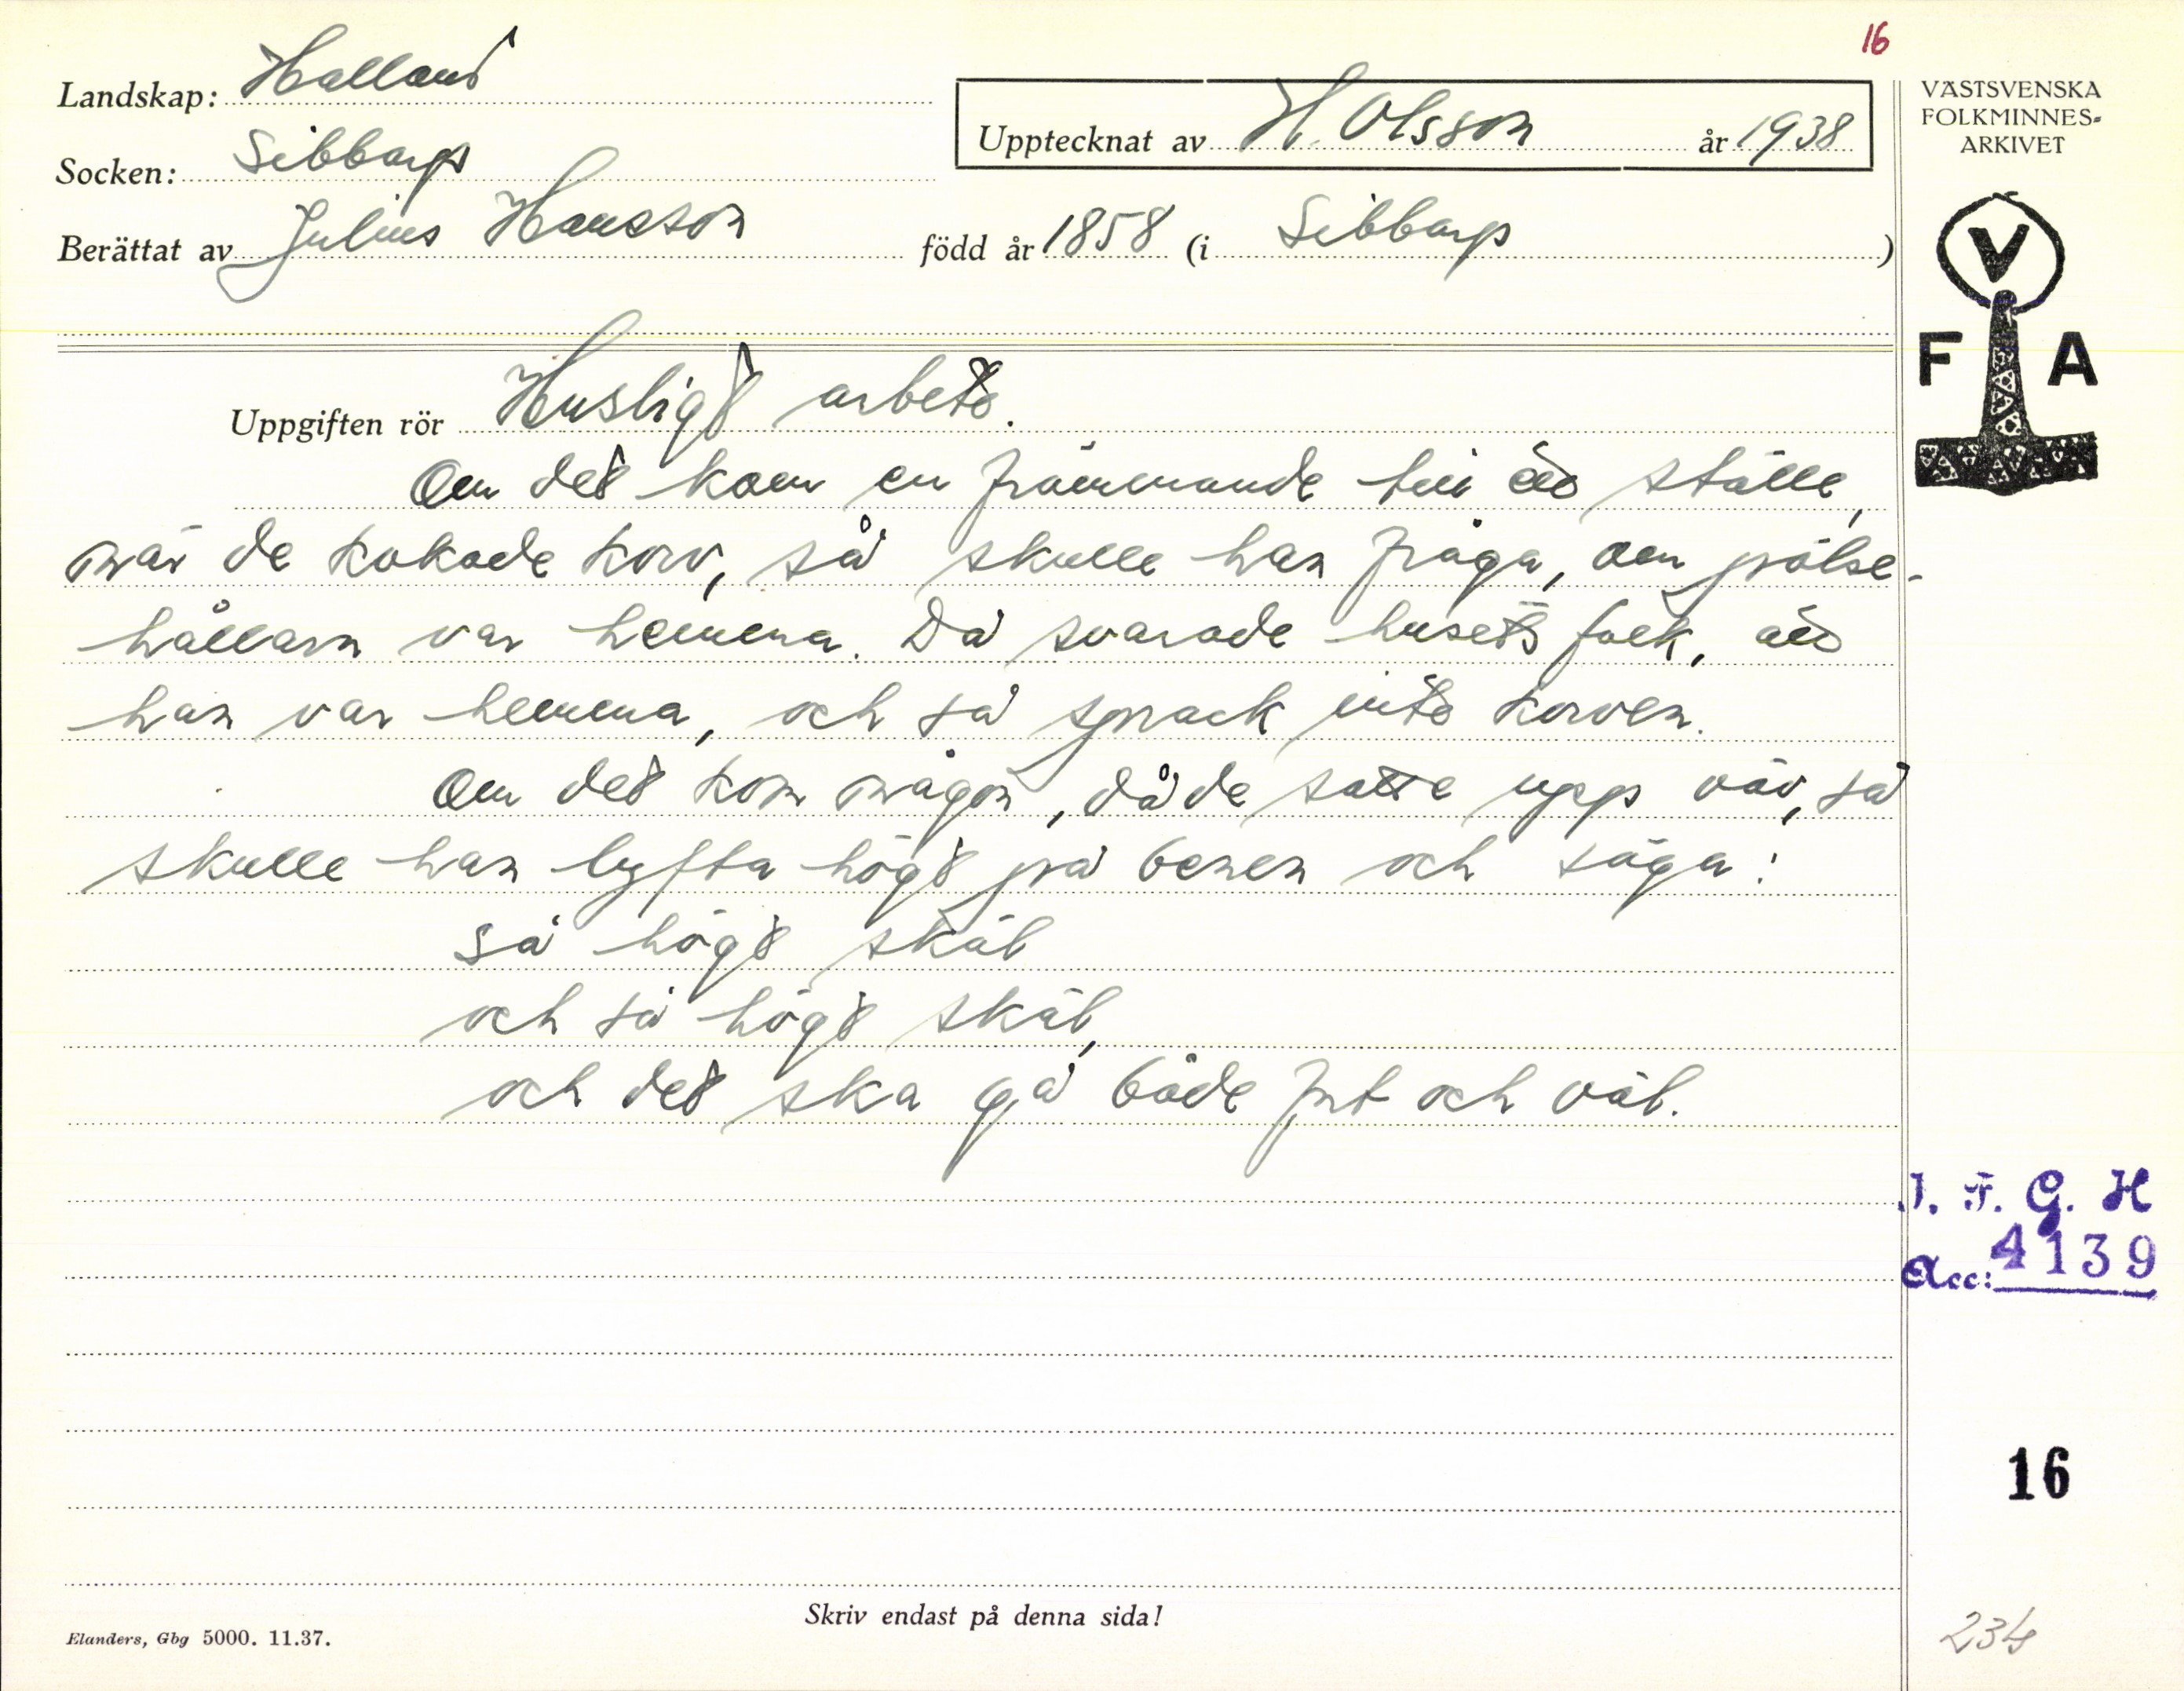 16
Landskap: Halland
Upptecknat av H. Olsson år 1938
VÄSTSVENSKA
FOLKMINNES-
ARKIVET
Socken: Sibbarp
Berättat av Julius Hansson född år 1858 (i Sibbarp)
V
F A
Uppgiften rör Husligt arbete.
Om det kom en främmande till ett ställe,
när de kokade korv, så skulle han fråga, om pölse-
hållarn var hemma. Då svarade husets folk, att
han var hemma, och så sprack inte korven.
Om det kom någon, då de satte upp väv, så
skulle han lyfta högt på benen och säga:
Så högt skäl
och så högt skäl,
och det ska gå både fort och väl.
I. F. G. H
Acc: 4139
16
Skriv endast på denna sida!
Elanders, Gbg 5000. 11.37.
234